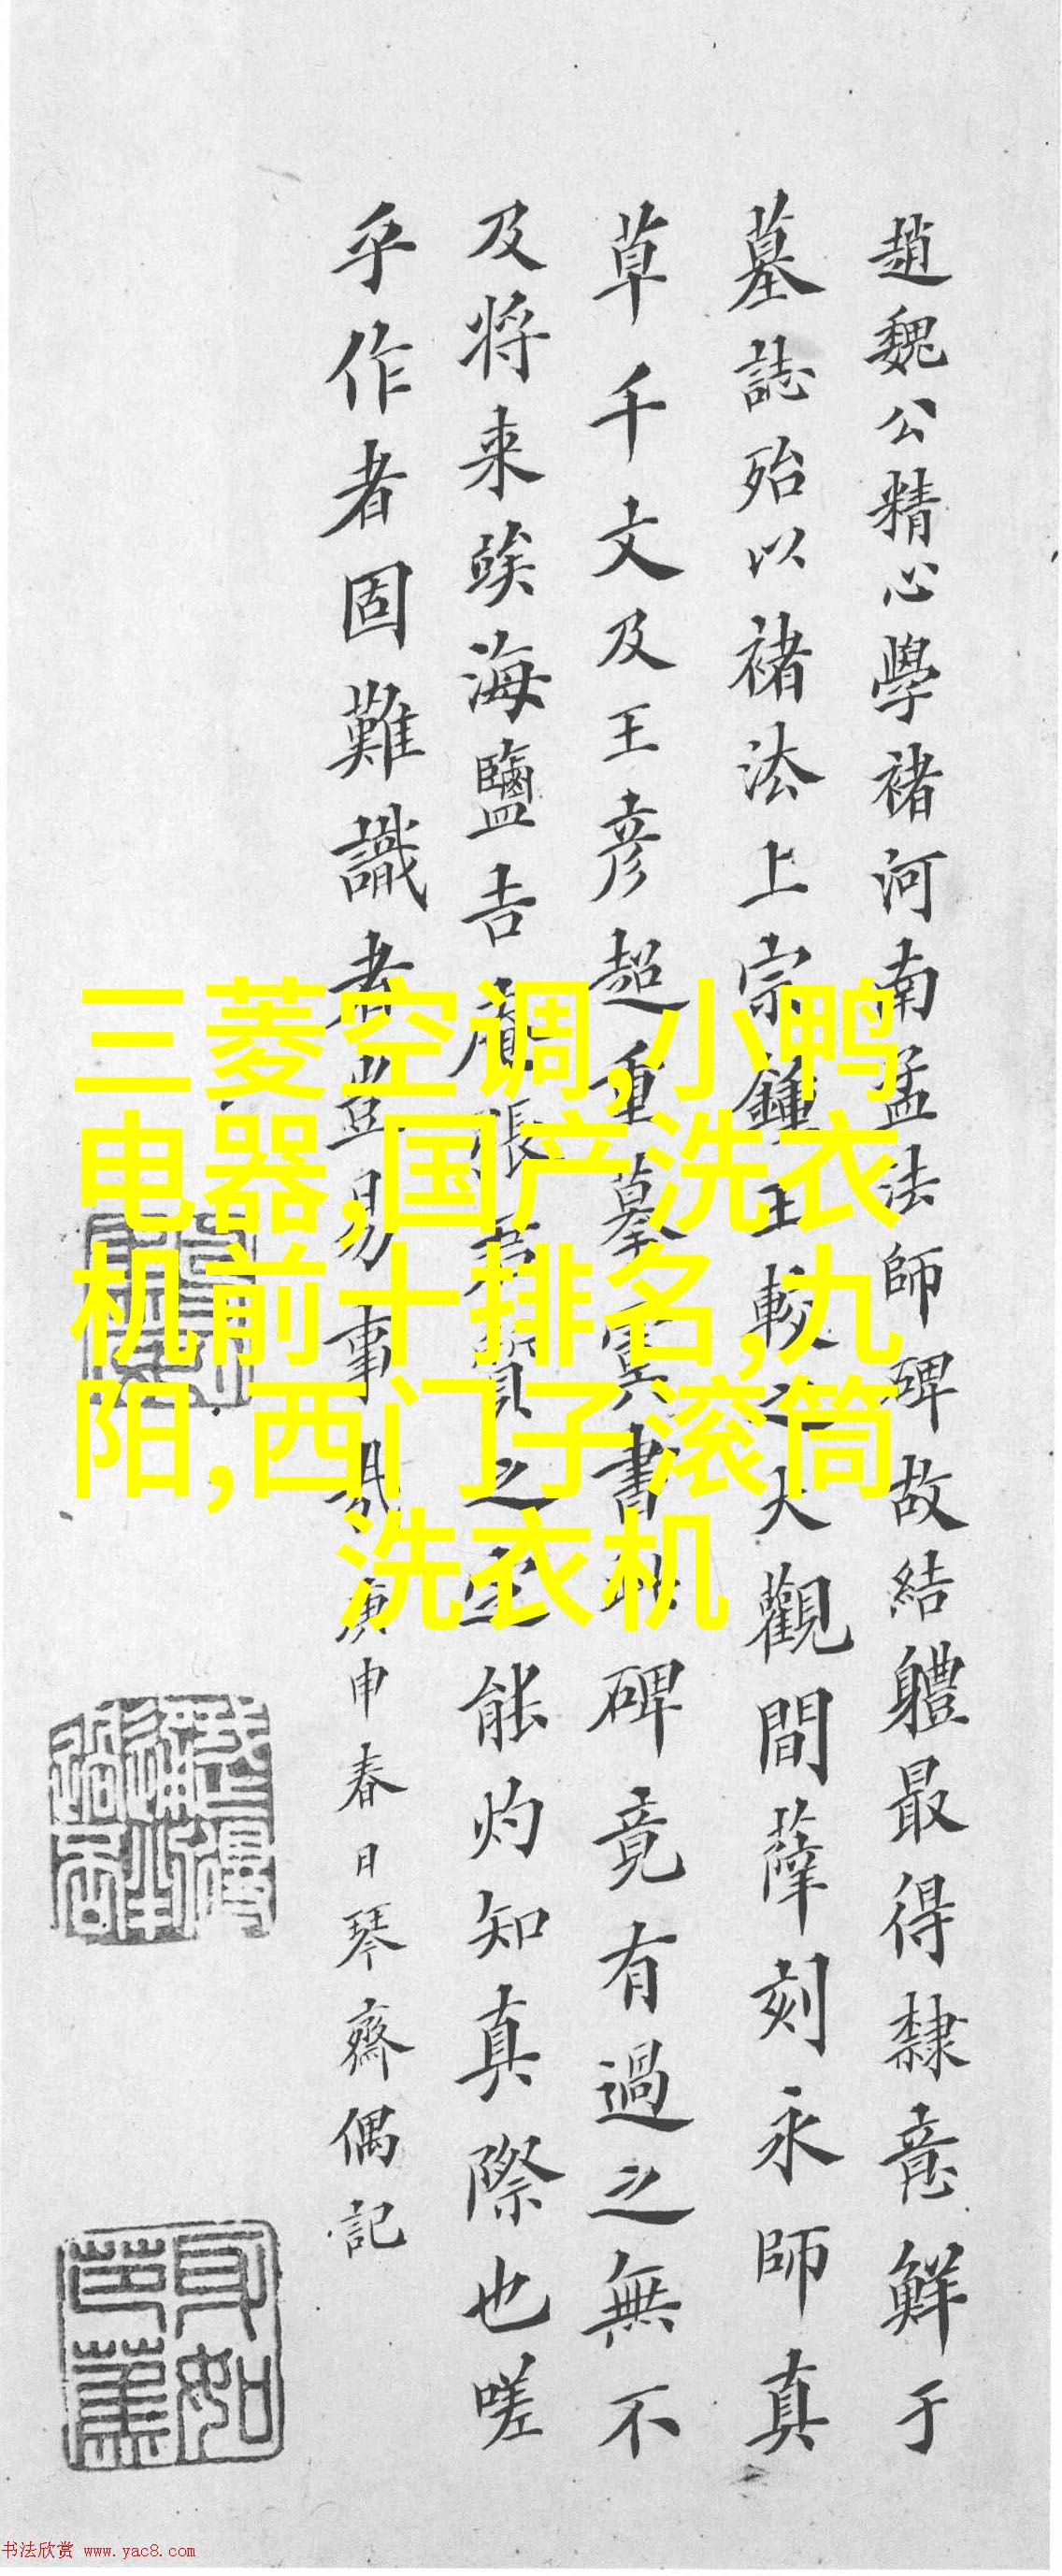 趙魏公精心學褚河南孟法師碑故結軆最得隸意鮮于
墓誌殆以褚法上宗鍾王較之大觀間薛刻永師真
草千文及王彦超重摹虞書此碑竟有過之無不
及将来竢海鹽吉張君質之定能灼知真際也嗟
乎作者固難識者豈易事哉庚申春日琴齋偶記
身如芭蕉
三菱空调,小鸭
电器,国产洗衣
机前十排名,九
阳,西门子滚筒
洗衣机
书法欣赏 www.yac8.com